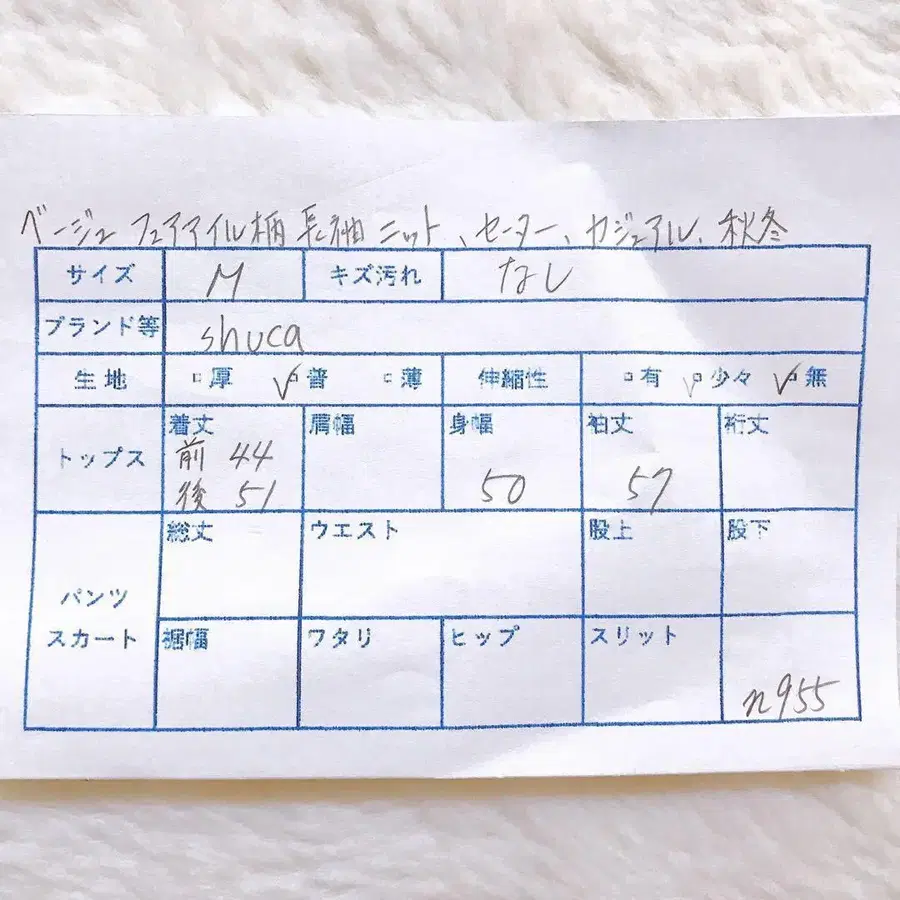 ベージュ フェアアイル柄 長袖 ニット、セーター、カジュアル、秋冬
サイズ M キズ汚れ なし
ブランド等 shuca
生地 □厚 ☑普 □薄 伸縮性 □有 □少々 ☑無
トップス 着丈 前 44 後 51 肩幅 身幅 50 袖丈 57 裄丈
パンツ スカート 総丈 ウエスト 股上 股下
裾幅 ワタリ ヒップ スリット n955